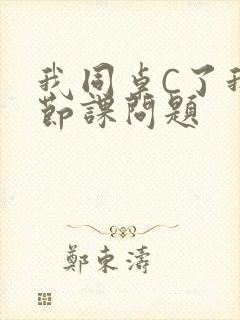 我同卓C了我
節課問題
鄭東濤